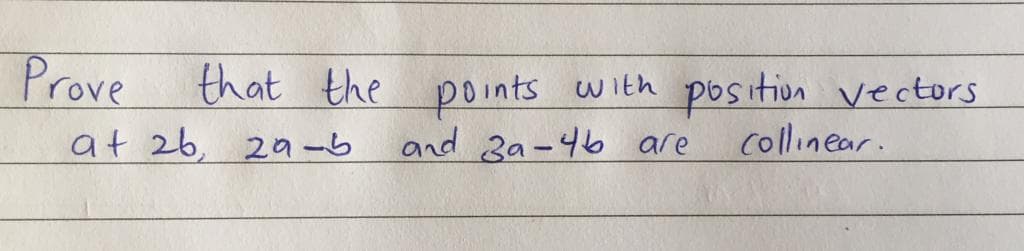 Prove that the points with position vectors
a+ 2b, 2a-b and 3a-4b are collinear.